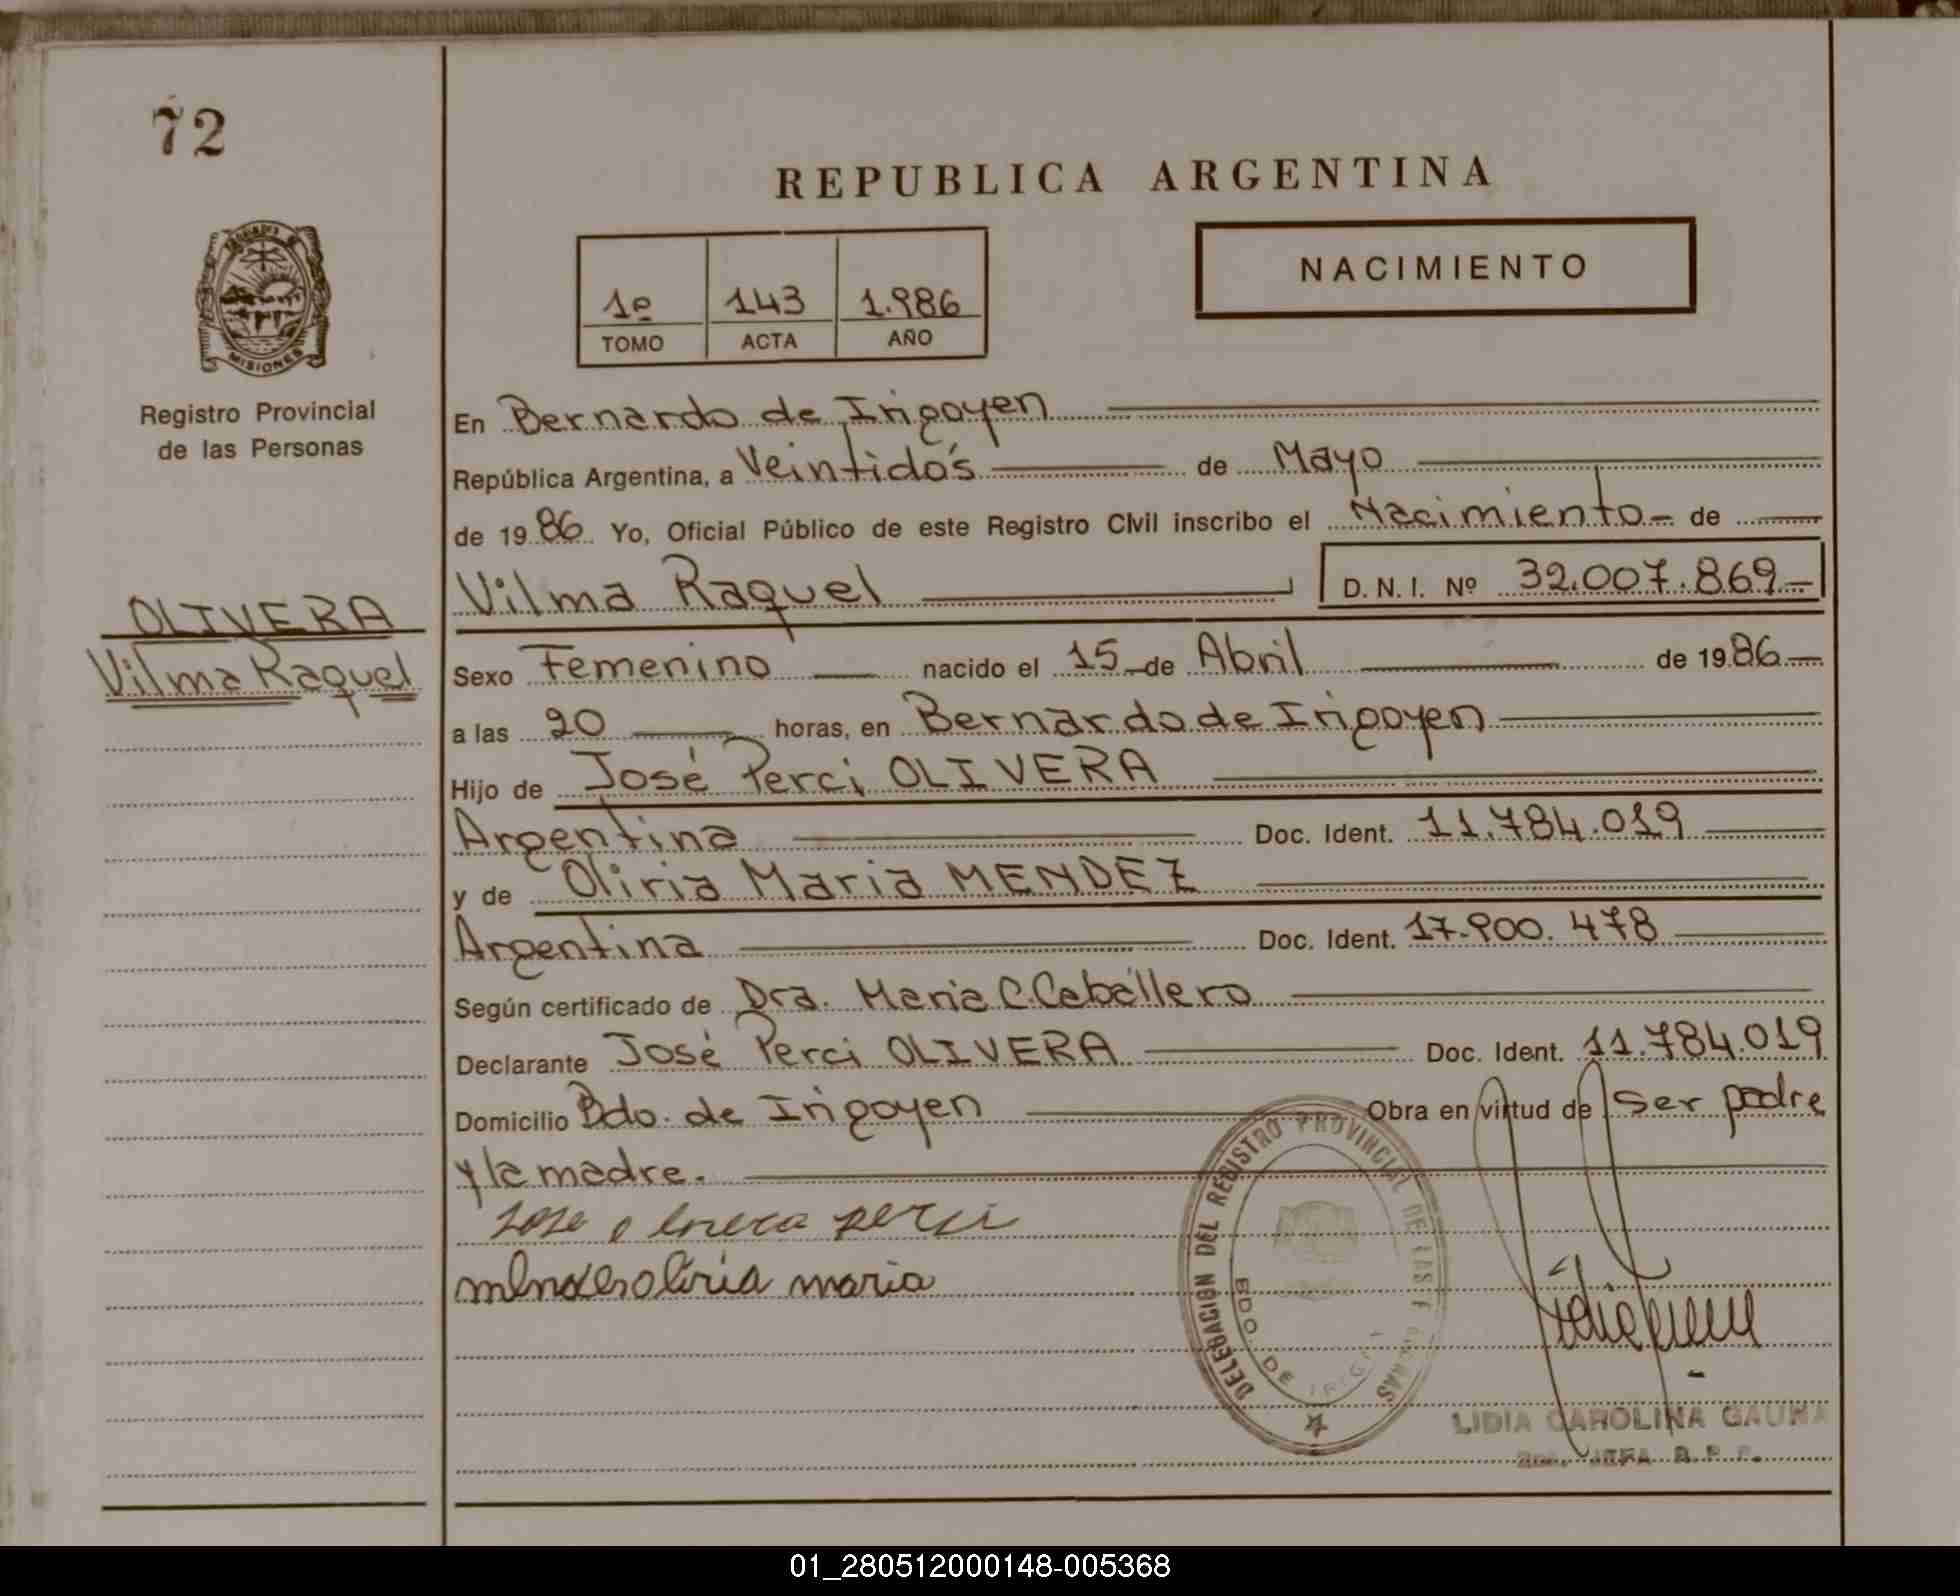 72
REPUBLICA ARGENTINA
NACIMIENTO
1º 143 1.986
TOMO ACTA AÑO
MISIONES
Registro Provincial
de las Personas
En Bernardo de Irigoyen
República Argentina, a Veintidós de Mayo
de 19 86 Yo, Oficial Público de este Registro Civil inscribo el Nacimiento de
Vilma Raquel D. N. I. Nº 32.007.869
OLIVERA
Vilma Raquel
Sexo Femenino nacido el 15 de Abril de 19 86
a las 20 horas, en Bernardo de Irigoyen
Hijo de José Perci OLIVERA
Argentina Doc. Ident. 11.784.019
y de Oliria Maria MENDEZ
Argentina Doc. Ident. 17.900.478
Según certificado de Dra. Maria C. Caballero
Declarante José Perci OLIVERA Doc. Ident. 11.784.019
Domicilio Bdo. de Irigoyen Obra en virtud de Ser padre
y la madre.
Jose olivera perci
mendes oliria maria
DELEGACION DEL REGISTRO PROVINCIAL DE LAS PERSONAS
BDO. DE IRIGOYEN
LIDIA CAROLINA GAUNA
JEFA R. P. P.
01_280512000148-005368